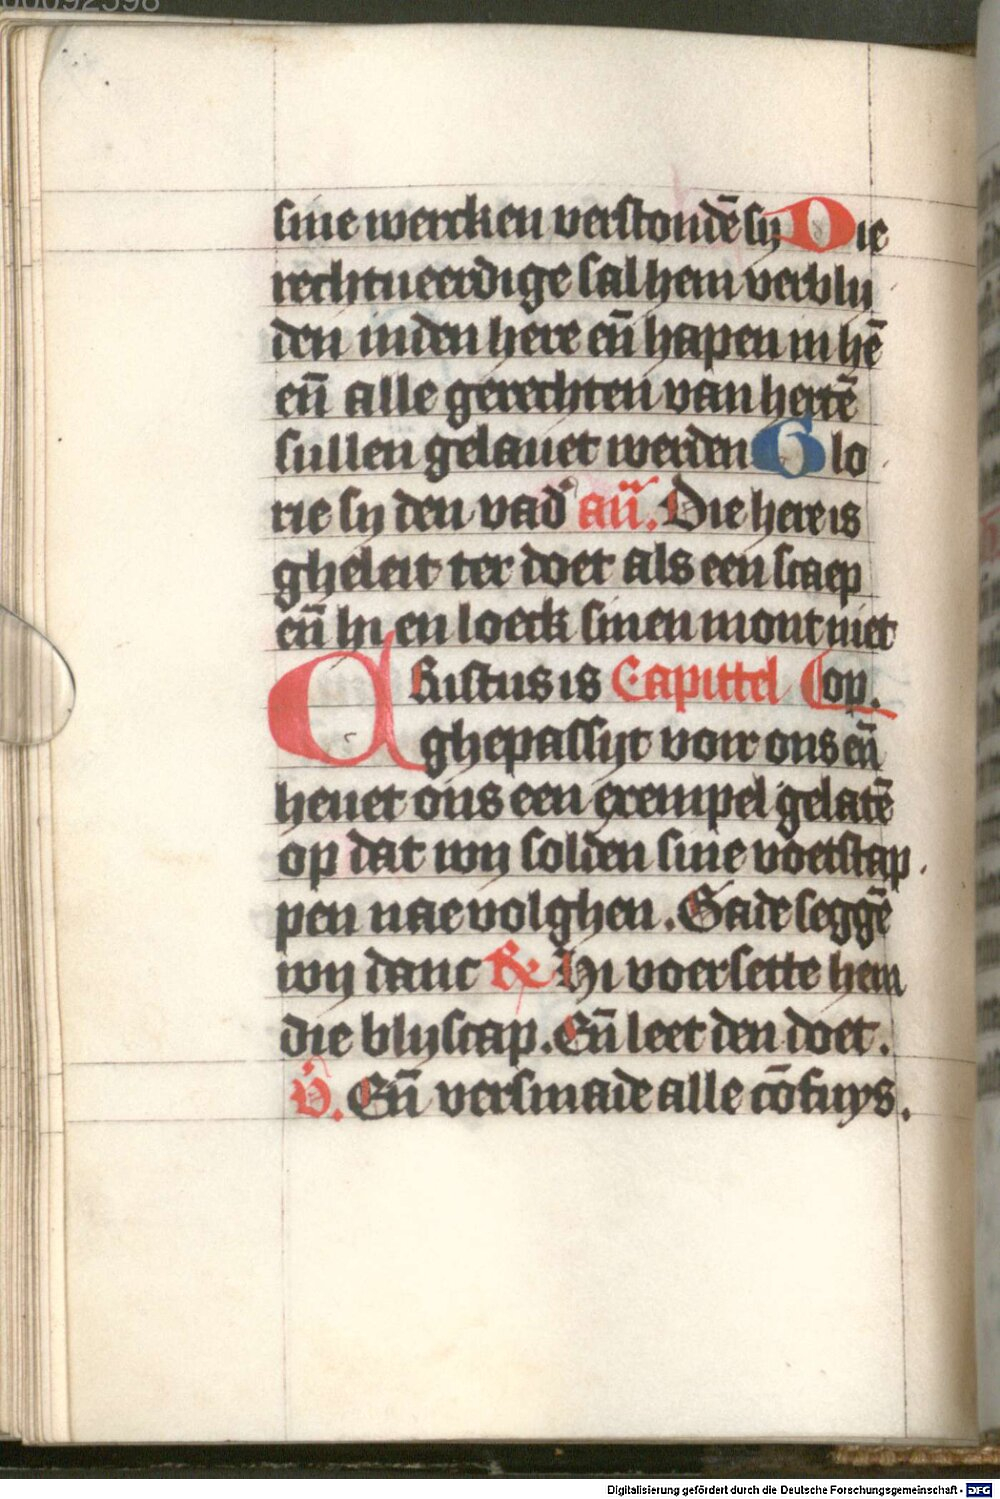 00092598
sine wercken verstondē sy Die
rechtueerdige sal hem verbly
den inden here eñ hapen in hē
eñ alle gerechten van hertē
sullen gelauet werden Glo
rie sy den vad' añ. Die here is
gheleit ter doet als een scaep
eñ hi en loeck sinen mont niet
Cristus is Capittel op.
ghepassyt voir ons eñ
heuet ons een exempel gelatē
op dat wy solden sine voetstap
pen nae volghen. Gade seggē
wy danc R Hi voersette hem
die blyscap. Eñ leet den doet.
V. Eñ versmade alle cōfuys.
Digitalisierung gefördert durch die Deutsche Forschungsgemeinschaft - DFG